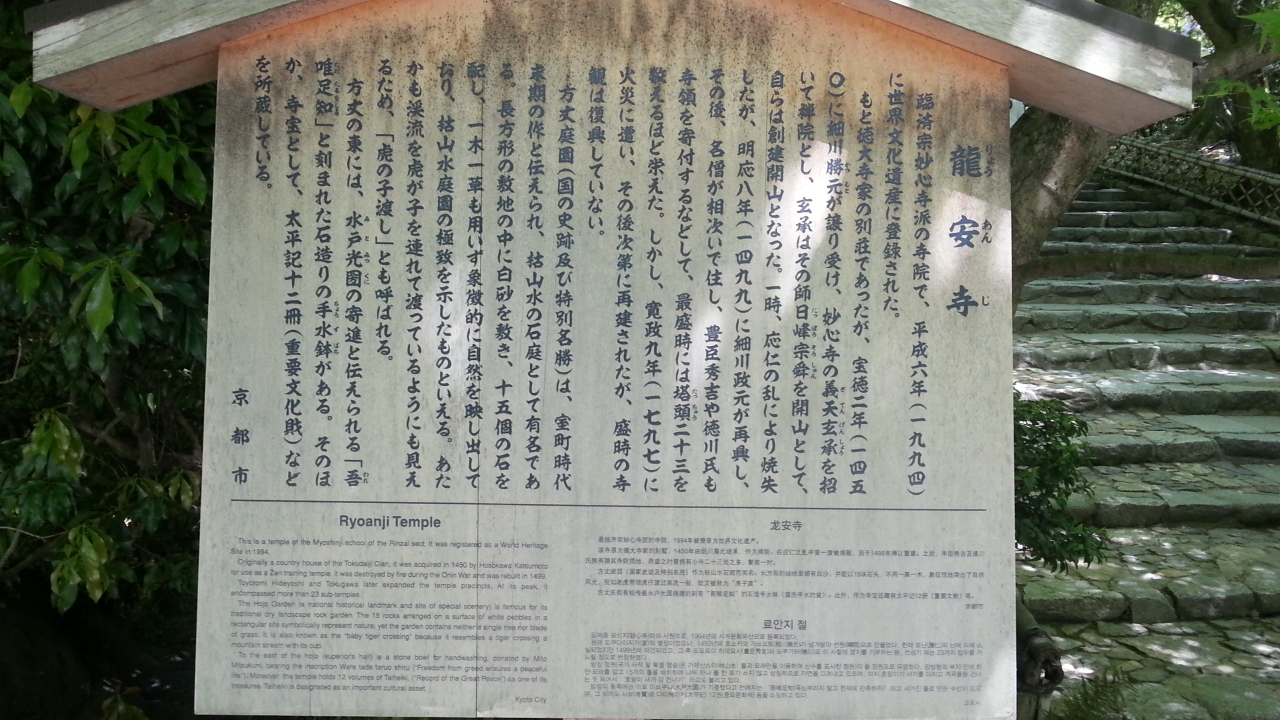 龍安寺
臨済宗妙心寺派の寺院で、平成六年(一九九四)
に世界文化遺産に登録された。
もと徳大寺家の別荘であったが、宝徳二年(一四五
〇)に細川勝元が譲り受け、妙心寺の義天玄承を招
いて禅院とし、玄承はその師日峰宗舜を開山として、
自らは創建開山となった。一時、応仁の乱により焼失
したが、明応八年(一四九九)に細川政元が再興し、
その後、名僧が相次いで住し、豊臣秀吉や徳川氏も
寺領を寄付するなどして、最盛時には塔頭二十三を
数えるほど栄えた。しかし、寛政九年(一七九七)に
火災に遭い、その後次第に再建されたが、盛時の寺
観は復興していない。
方丈庭園(国の史跡及び特別名勝)は、室町時代
末期の作と伝えられ、枯山水の石庭として有名であ
る。長方形の敷地の中に白砂を敷き、十五個の石を
配し、一木一草も用いず象徴的に自然を映し出して
おり、枯山水庭園の極致を示したものといえる。あた
かも渓流を虎が子を連れて渡っているようにも見え
るため、「虎の子渡し」とも呼ばれる。
方丈の東には、水戸光圀の寄進と伝えられる「吾
唯足知」と刻まれた石造りの手水鉢がある。そのほ
か、寺宝として、太平記十二冊(重要文化財)など
を所蔵している。
京都市
Ryoanji Temple
This is a temple of the Myoshinji school of the Rinzai sect. It was registered as a World Heritage
Site in 1994.
Originally a country house of the Tokudaiji Clan, it was acquired in 1450 by Hosokawa Katsumoto
for use as a Zen training temple. It was destroyed by fire during the Onin War and was rebuilt in 1499.
Toyotomi Hideyoshi and Tokugawa later expanded the temple precincts. At its peak, it
encompassed more than 23 sub-temples.
The Hojo Garden (a national historical landmark and site of special scenery) is famous for its
traditional dry landscape rock garden. The 15 rocks arranged on a surface of white pebbles in a
rectangular site symbolically represent nature, yet the garden contains neither a single tree nor blade
of grass. It is also known as the "baby tiger crossing" because it resembles a tiger crossing a
mountain stream with its cub.
To the east of the hojo (superior's hall) is a stone bowl for handwashing, donated by Mito
Mitsukuni, bearing the inscription Ware tada taruo shiru ("Freedom of greed ensures a peaceful
life"). Moreover, the temple holds 12 volumes of Taiheiki, ("Record of the Great Peace") as one of its
treasures. Taiheiki is designated as an important cultural asset.
Kyoto City
龙安寺
京都市
료안지 절